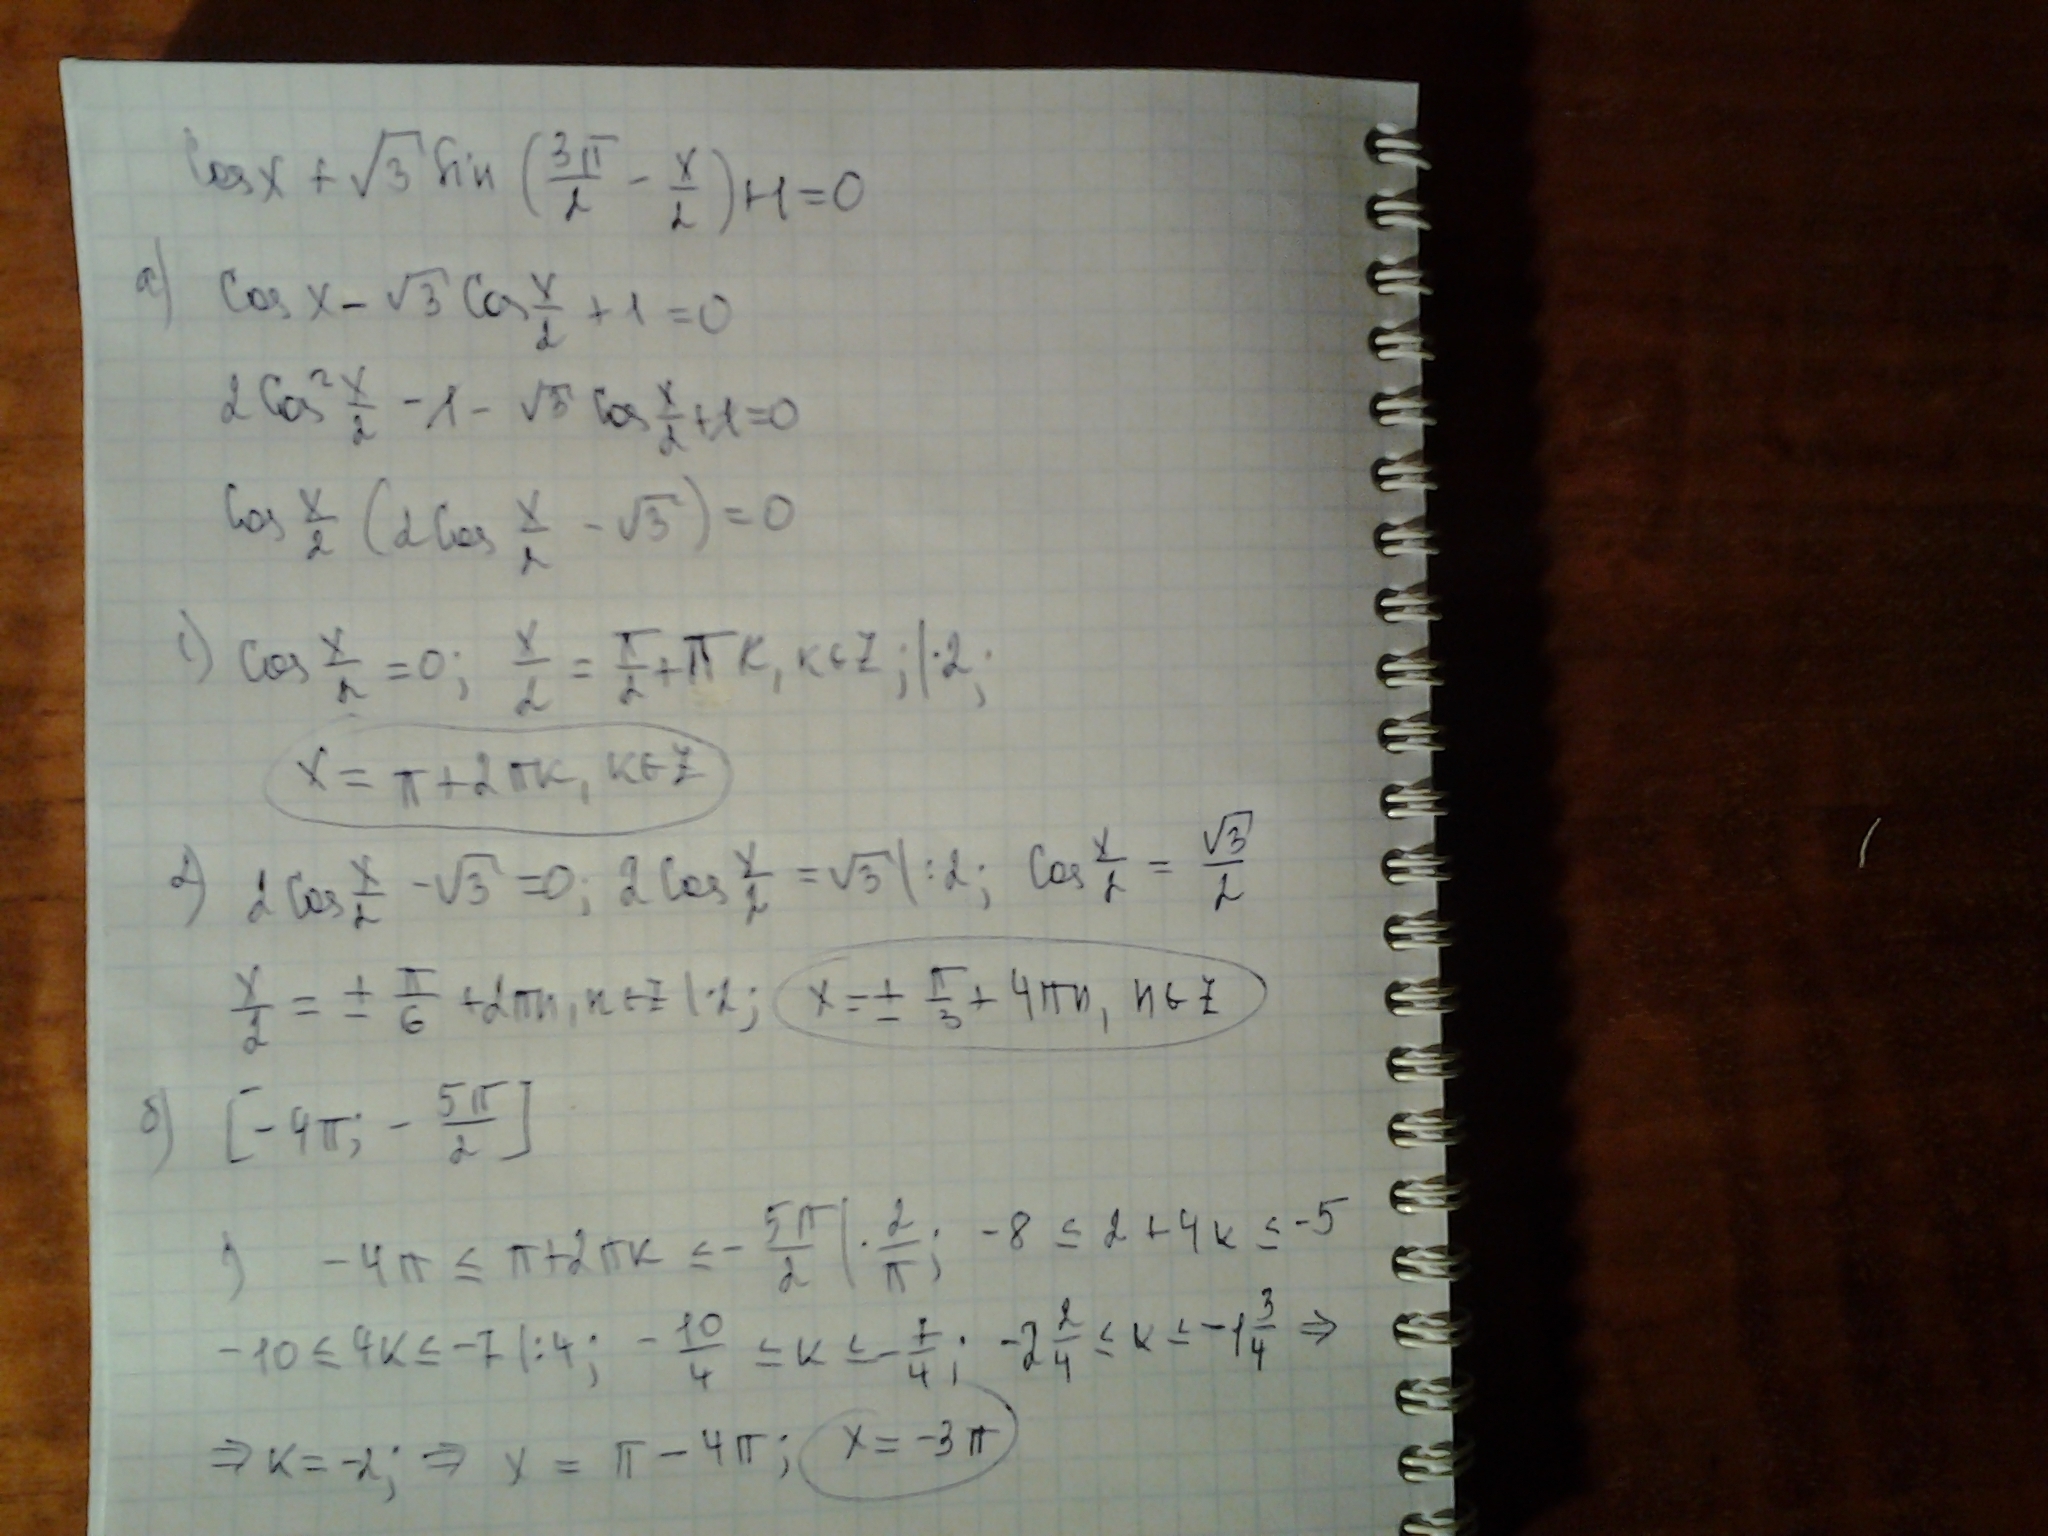 cos x + √3 sin (3π/2 - x/2) + 1 = 0
а) cos x - √3 cos x/2 + 1 = 0
2 cos² x/2 - 1 - √3 cos x/2 + 1 = 0
cos x/2 (2 cos x/2 - √3) = 0
1) cos x/2 = 0; x/2 = π/2 + πk, k∈Z; |·2;
x = π + 2πk, k∈Z
2) 2 cos x/2 - √3 = 0; 2 cos x/2 = √3 |:2; cos x/2 = √3/2
x/2 = ± π/6 + 2πn, n∈Z |·2; x = ± π/3 + 4πn, n∈Z
б) [-4π; - 5π/2]
1) -4π ≤ π + 2πk ≤ - 5π/2 |· 2/π; -8 ≤ 2 + 4k ≤ -5
-10 ≤ 4k ≤ -7 |:4; - 10/4 ≤ k ≤ - 7/4; -2 2/4 ≤ k ≤ -1 3/4 ⇒
⇒ k = -2; ⇒ x = π - 4π; x = -3π